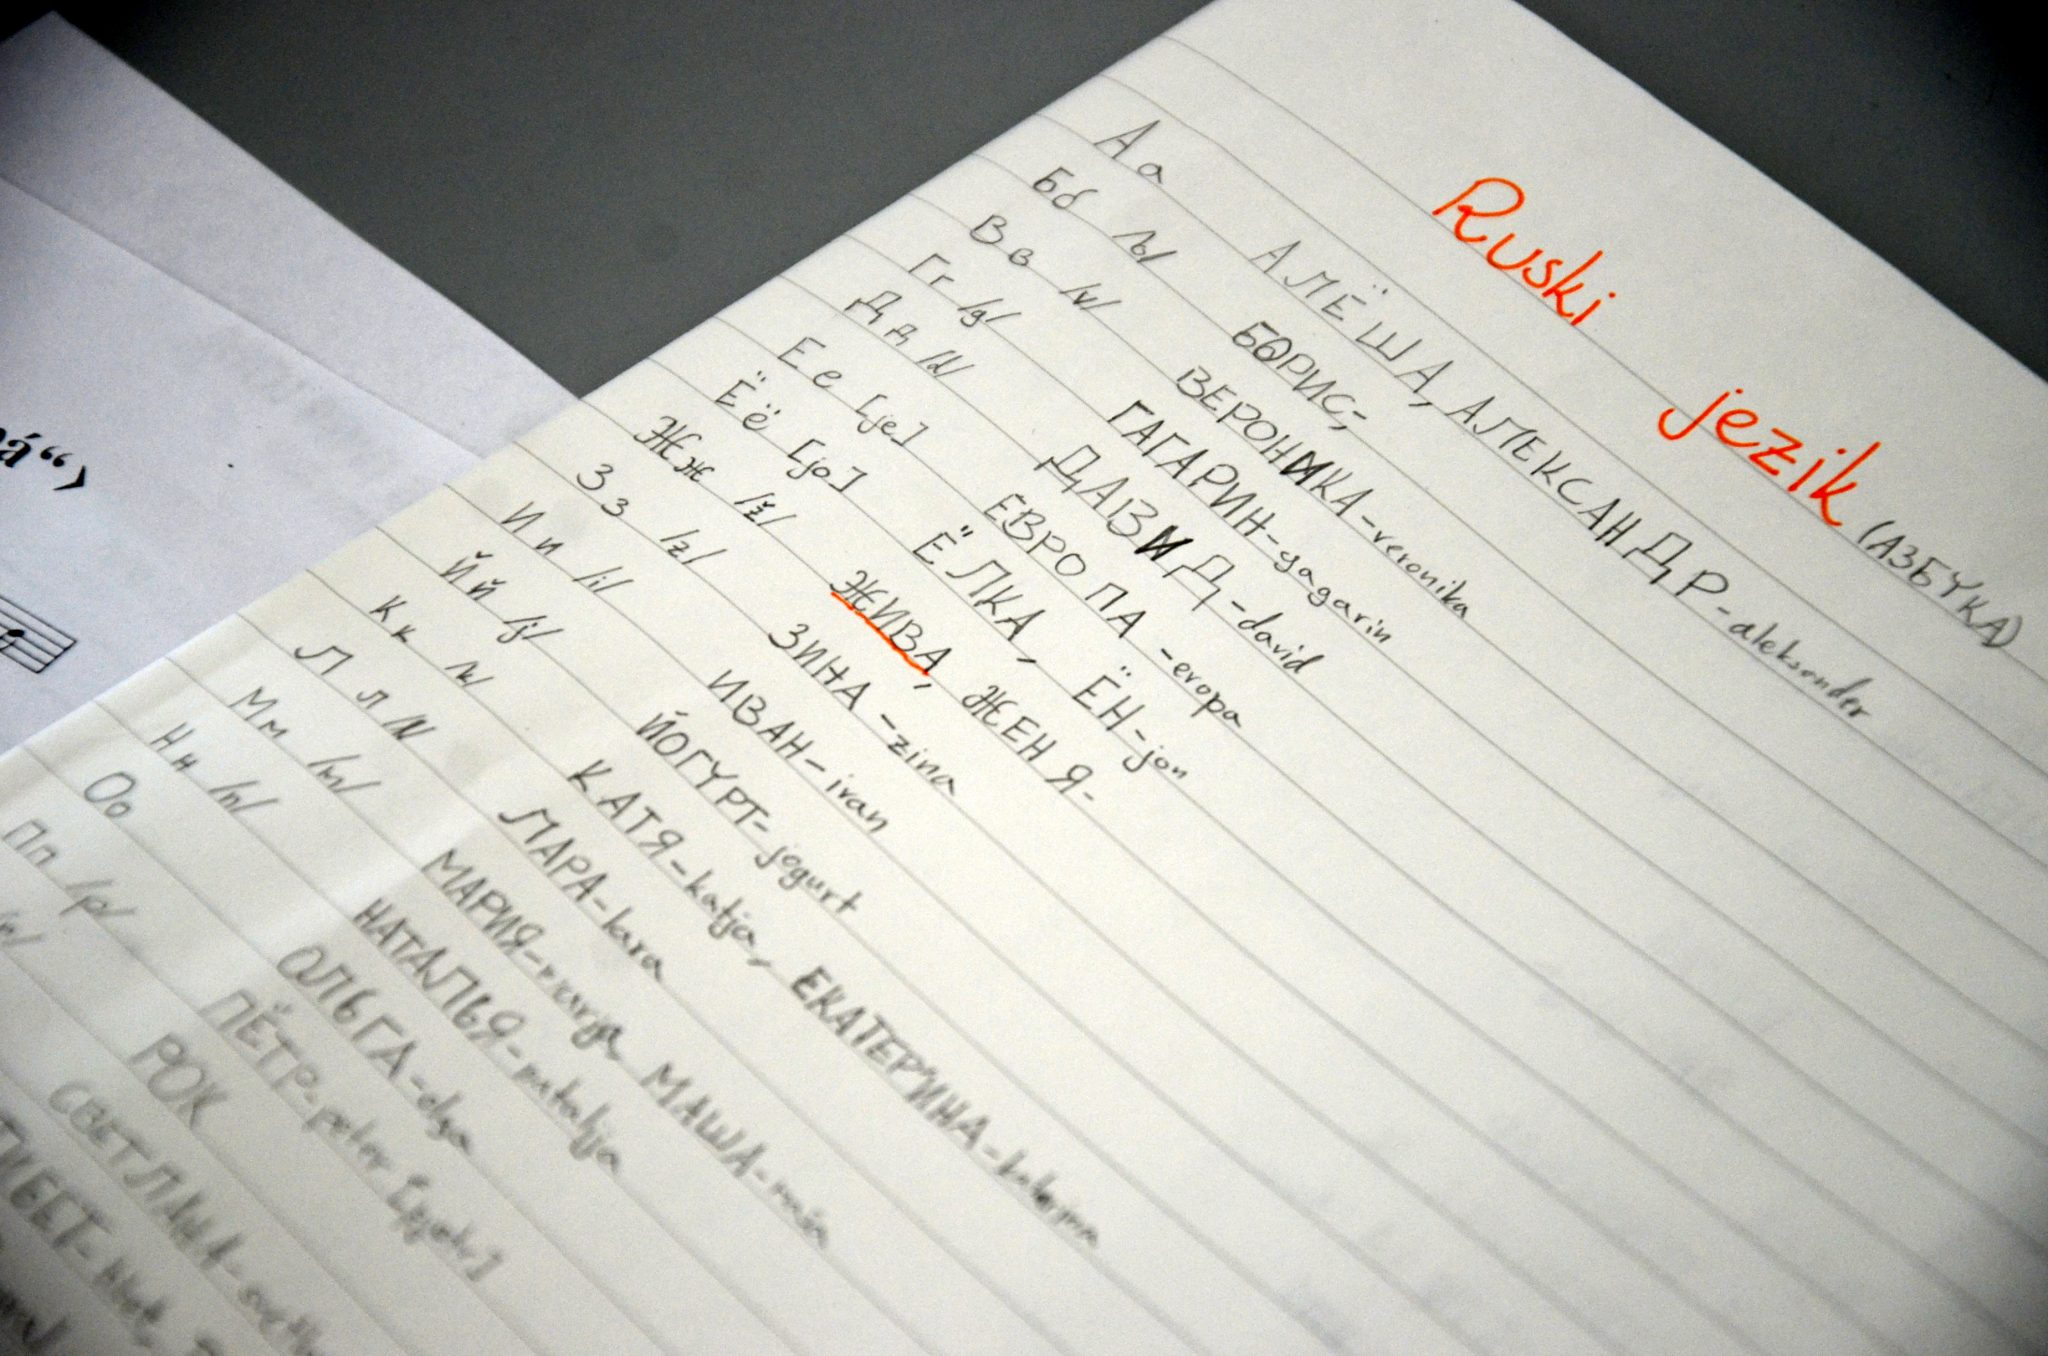 á“)
Ruski jezik (АЗБУКА)
А а АЛЁША, АЛЕКСАНДР - aleksander
Бб /b/ БОРИС,
Вв /v/ ВЕРОНИКА - veronika
Гг /g/ ГАГАРИН - gagarin
Дд /d/ ДАВИД - david
Ее [je] ЕВРОПА - evropa
Ёё [jo] ЁЛКА, ЁН - jon
Жж /ž/ ЖИВА, ЖЕНЯ -
Зз /z/ ЗИНА - zina
Ии /i/ ИВАН - ivan
Йй /j/ ЙОГУРТ - jogurt
Кк /k/ КАТЯ - katja, ЕКАТЕРИНА - katerina
Лл /l/ ЛАРА - lara
Мм /m/ МАРИЯ - marija МАША - maša
Нн /n/ НАТАЛЬЯ - natalija
Оо ОЛЬГА - olga
Пп /p/ ПЁТР - peter [pjotr]
/r/ РОК
СВЕТЛАНА - svetla
ТИБЕТ - tibet,